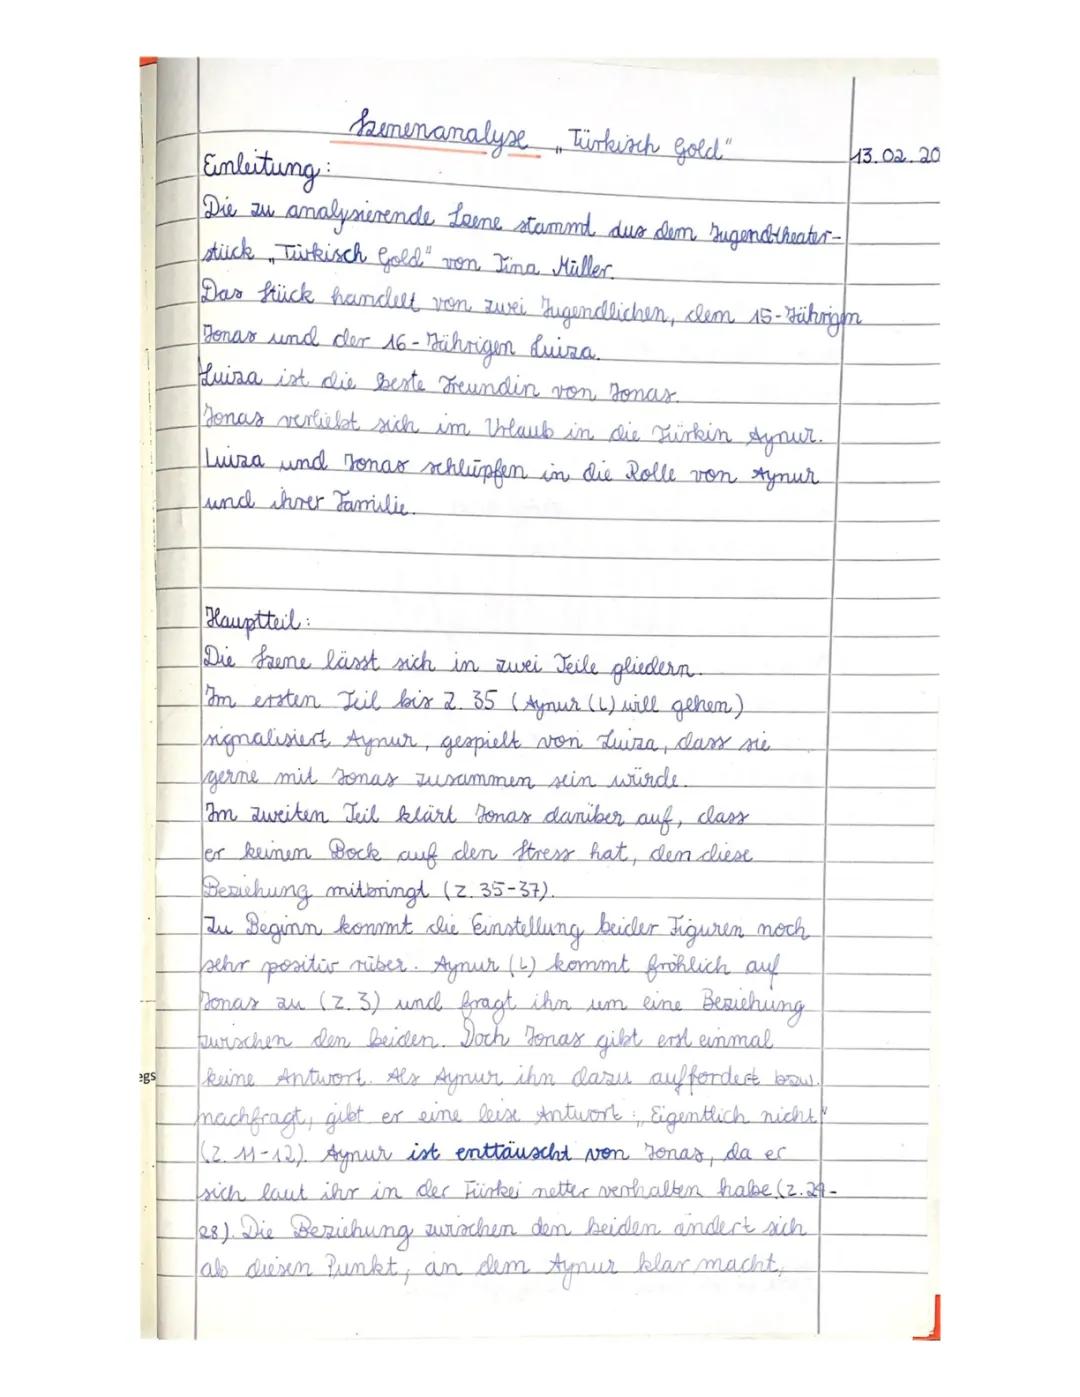 Szenenanalyse „Türkisch Gold"
13.02.20
Einleitung:
Die zu analysierende Szene stammt aus dem Jugendtheater-
stück „Türkisch Gold" von Tina Müller.
Das Stück handelt von zwei Jugendlichen, dem 15-Jährigen
Jonas und der 16-Jährigen Luiza.
Luiza ist die beste Freundin von Jonas.
Jonas verliebt sich im Urlaub in die Türkin Aynur.
Luiza und Jonas schlüpfen in die Rolle von Aynur
und ihrer Familie.
Hauptteil:
Die Szene lässt sich in zwei Teile gliedern.
Im ersten Teil bis Z. 35 (Aynur (L) will gehen)
signalisiert Aynur, gespielt von Luiza, dass sie
gerne mit Jonas zusammen sein würde.
Im zweiten Teil klärt Jonas darüber auf, dass
er keinen Bock auf den Stress hat, den diese
Beziehung mitbringt (Z. 35-37).
Zu Beginn kommt die Einstellung beider Figuren noch
sehr positiv rüber. Aynur (L) kommt fröhlich auf
Jonas zu (Z. 3) und fragt ihn um eine Beziehung
zwischen den beiden. Doch Jonas gibt erst einmal
keine Antwort. Als Aynur ihn dazu auffordert bzw.
egs
nachfragt, gibt er eine leise Antwort: „Eigentlich nicht"
(Z. 11-12). Aynur ist enttäuscht von Jonas, da er
sich laut ihr in der Türkei netter verhalten habe (Z.
28). Die Beziehung zwischen den beiden ändert sich
ab diesen Punkt, an dem Aynur klar macht,